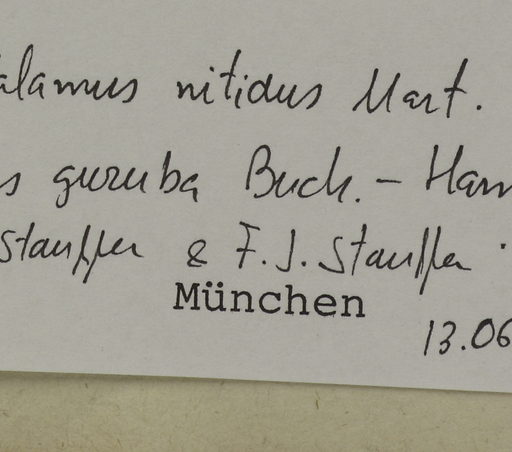 alamus nitidus Mart.
s guruba Buch.- Ham
Stauffer & F. J. Stauffer
München
13.06